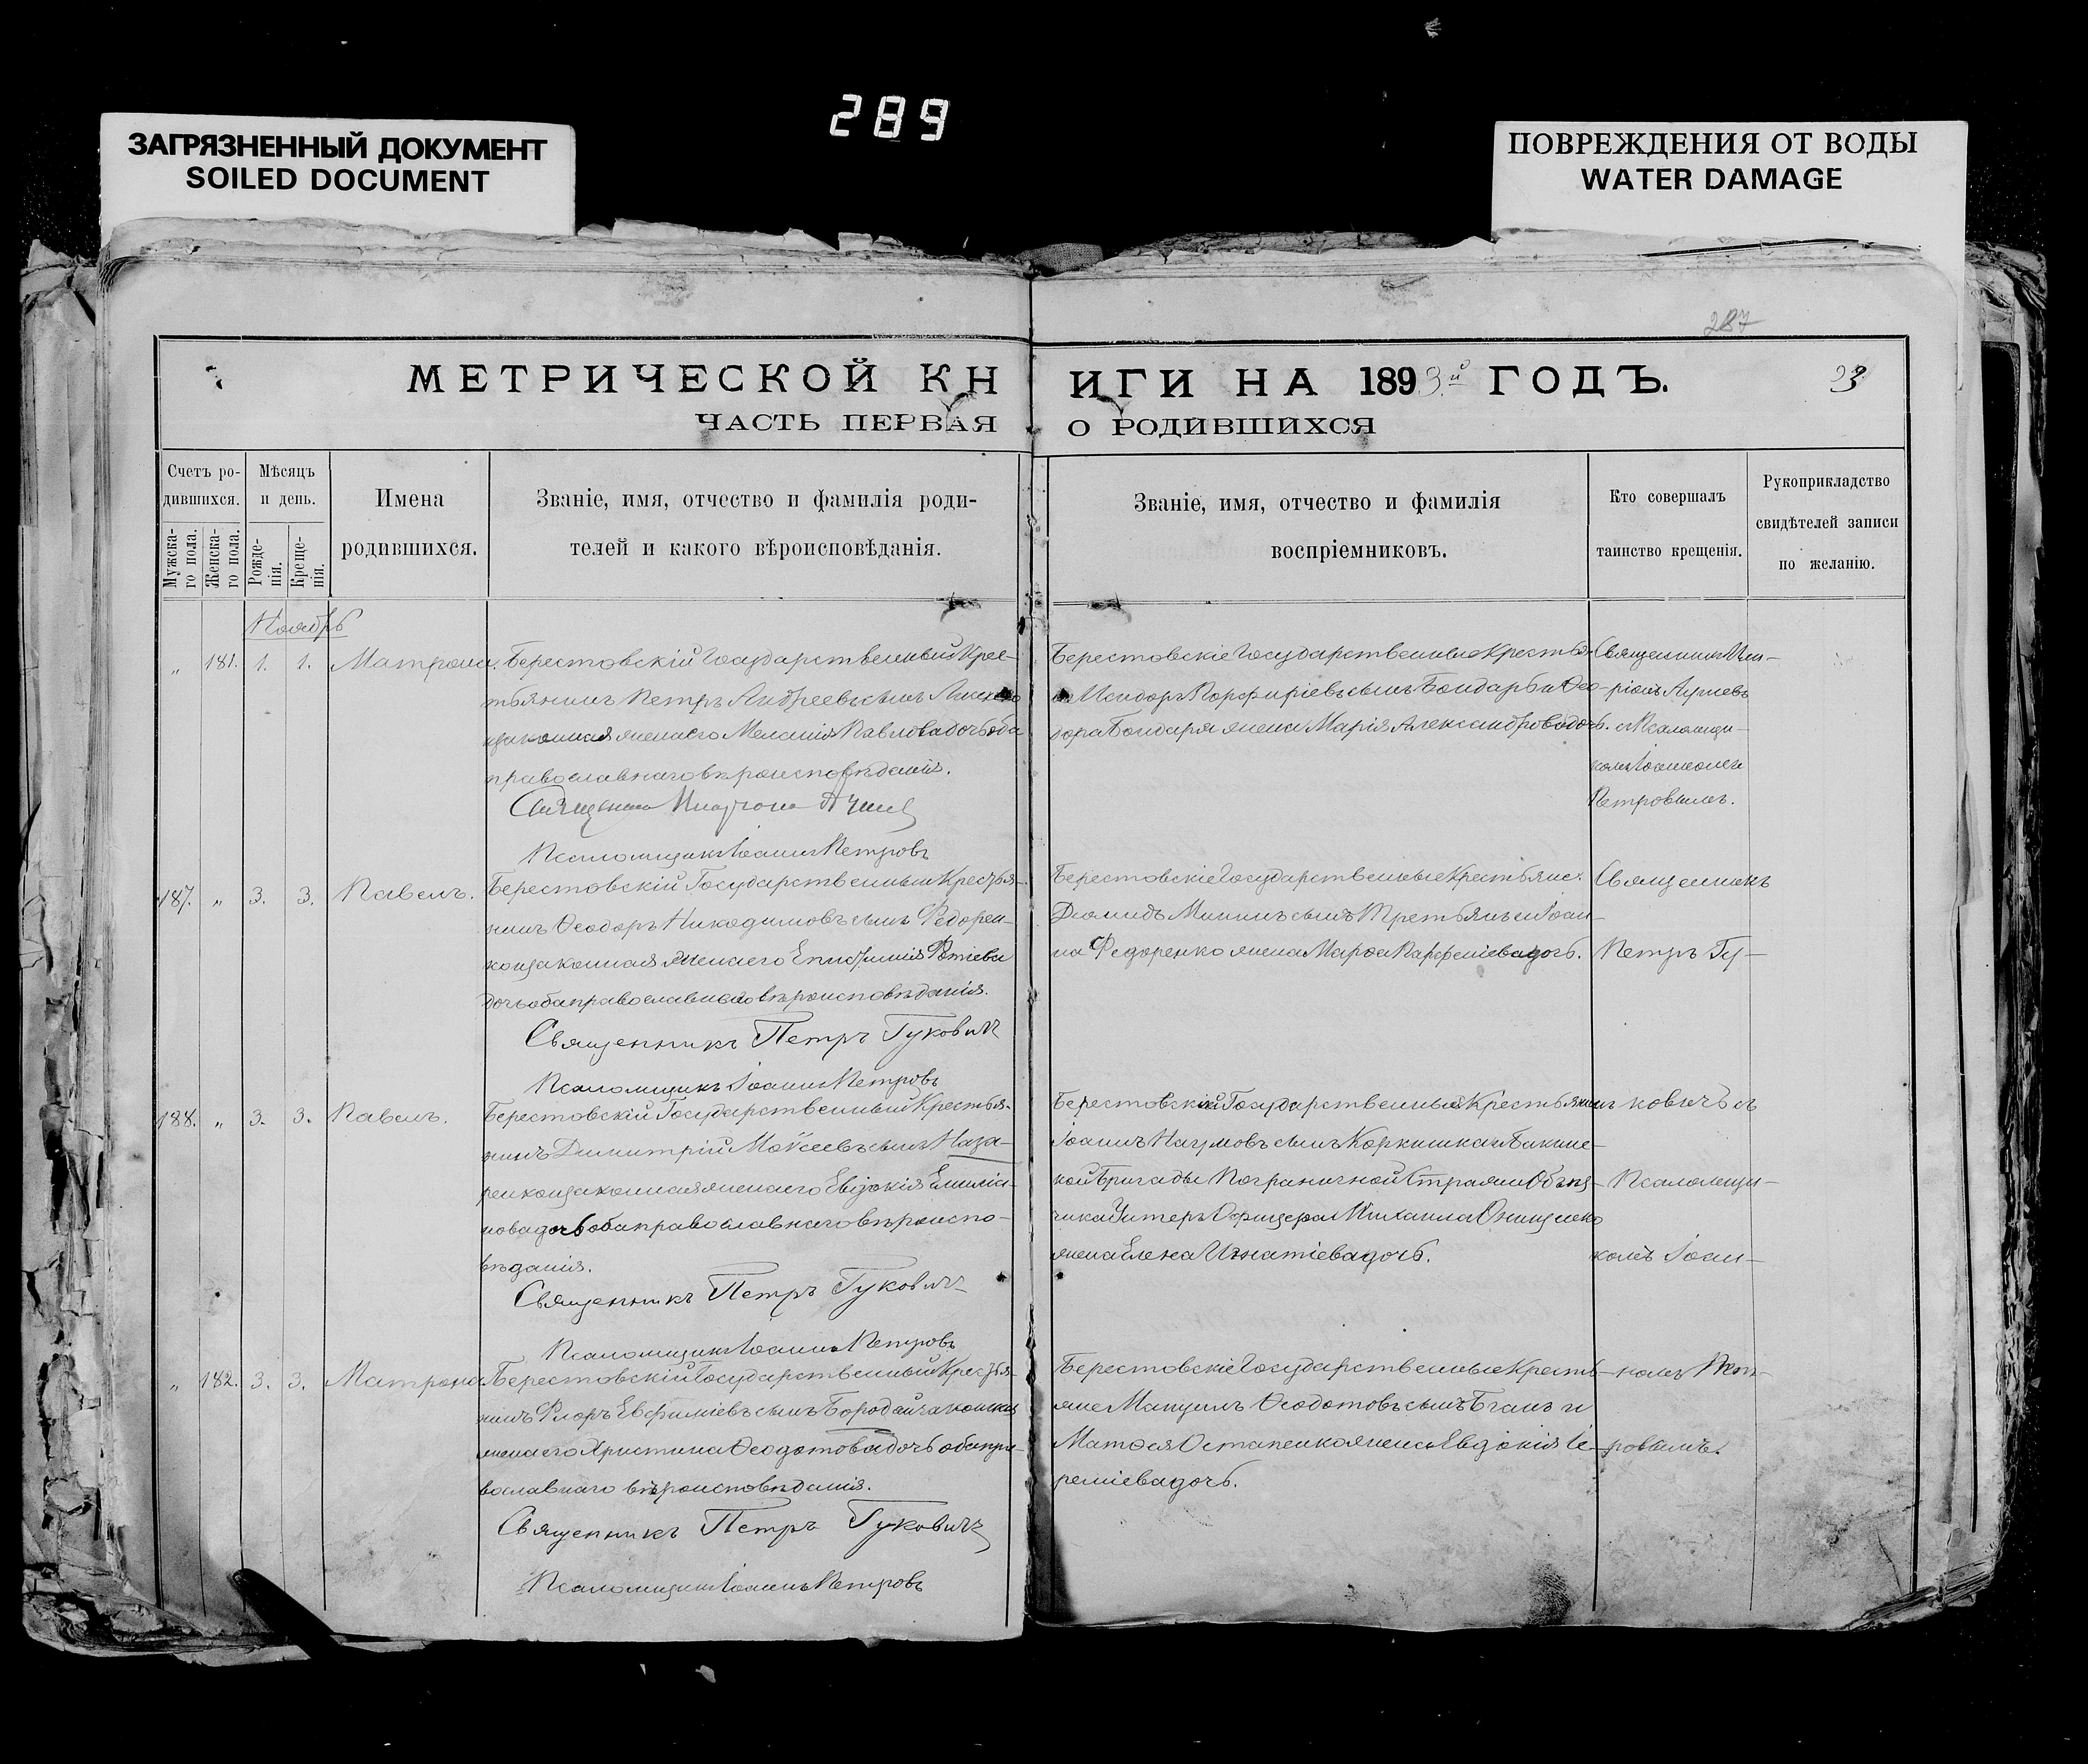 289
ЗАГРЯЗНЕННЫЙ ДОКУМЕНТ
SOILED DOCUMENT
ПОВРЕЖДЕНИЯ ОТ ВОДЫ
WATER DAMAGE
287
МЕТРИЧЕСКОЙ КНИГИ НА 1893й ГОДЪ.
ЧАСТЬ ПЕРВАЯ О РОДИВШИХСЯ
Счетъ ро-
дившихся.
Мужска-
го пола.
Женска-
го пола.
Мѣсяцъ
и день.
Рожде-
нія.
Креще-
нія.
Имена
родившихся.
Званіе, имя, отчество и фамилія роди-
телей и какого вѣроисповѣданія.
Званіе, имя, отчество и фамилія
воспріемниковъ.
Кто совершалъ
таинство крещенія.
Рукоприкладство
свидѣтелей записи
по желанію.
Ноябрь
„ 181. 1. 1. Матрона.
Берестовскій Государственный Крес-
тьянинъ Петръ Андреевъ сынъ
законная жена его Меланія Павлова дочь оба
православнаго вѣроисповѣданія.
Священникъ
Псаломщикъ Іоаннъ Петровъ
Берестовскіе Государственные Крестьян
Исидоръ Порфиріевъ сынъ Бондарь и Ѳео-
дора Бондаря жена Марія Александрова дочь.
Священникъ
съ Псаломщи-
комъ Іоанномъ
Петровымъ.
187. „ 3. 3. Павелъ.
Берестовскій Государственный Крестья-
нинъ Ѳеодоръ Никодимовъ сынъ Федорен-
ко и законная жена его Епистимія Фотіева
дочь оба православнаго вѣроисповѣданія.
Священникъ Петръ Гуковичъ
Псаломщикъ Іоаннъ Петровъ
Берестовскіе Государственные Крестьяне:
Діомидъ Мининъ сынъ Третьякъ и Іоан-
на Федоренко жена Марѳа Парфеніева дочь.
Священникъ
Петръ Гу-
188. „ 3. 3. Павелъ.
Берестовскій Государственный Крестья-
нинъ Димитрій Моѵсеевъ сынъ Наза-
ренко и законная жена его Евдокія Емиліа-
нова дочь оба православнаго вѣроиспо-
вѣданія.
Священникъ Петръ Гуковичъ
Псаломщикъ Іоаннъ Петровъ
Берестовскій Государственный Крестьянинъ
Іоаннъ Наумовъ сынъ Коркишка и
кой Бригады Пограничной Стражи Объѣз-
чика Унтеръ Офицера Михаила Онищенко
жена Елена Игнатіева дочь.
ковичъ съ
Псаломщи-
комъ Іоан-
„ 182. 3. 3. Матрона.
Берестовскій Государственный Крестья-
нинъ Флоръ Евфиміевъ сынъ Бородай законная
жена его Христина Ѳеодотова дочь оба пра-
вославнаго вѣроисповѣданія.
Священникъ Петръ Гуковичъ
Псаломщикъ Іоаннъ Петровъ
Берестовскіе Государственные Кресть-
яне Мануилъ Ѳеодотовъ сынъ и
Матѳея Остапенко жена Евдокія Іе-
реміева дочь.
номъ Пет-
ровымъ.